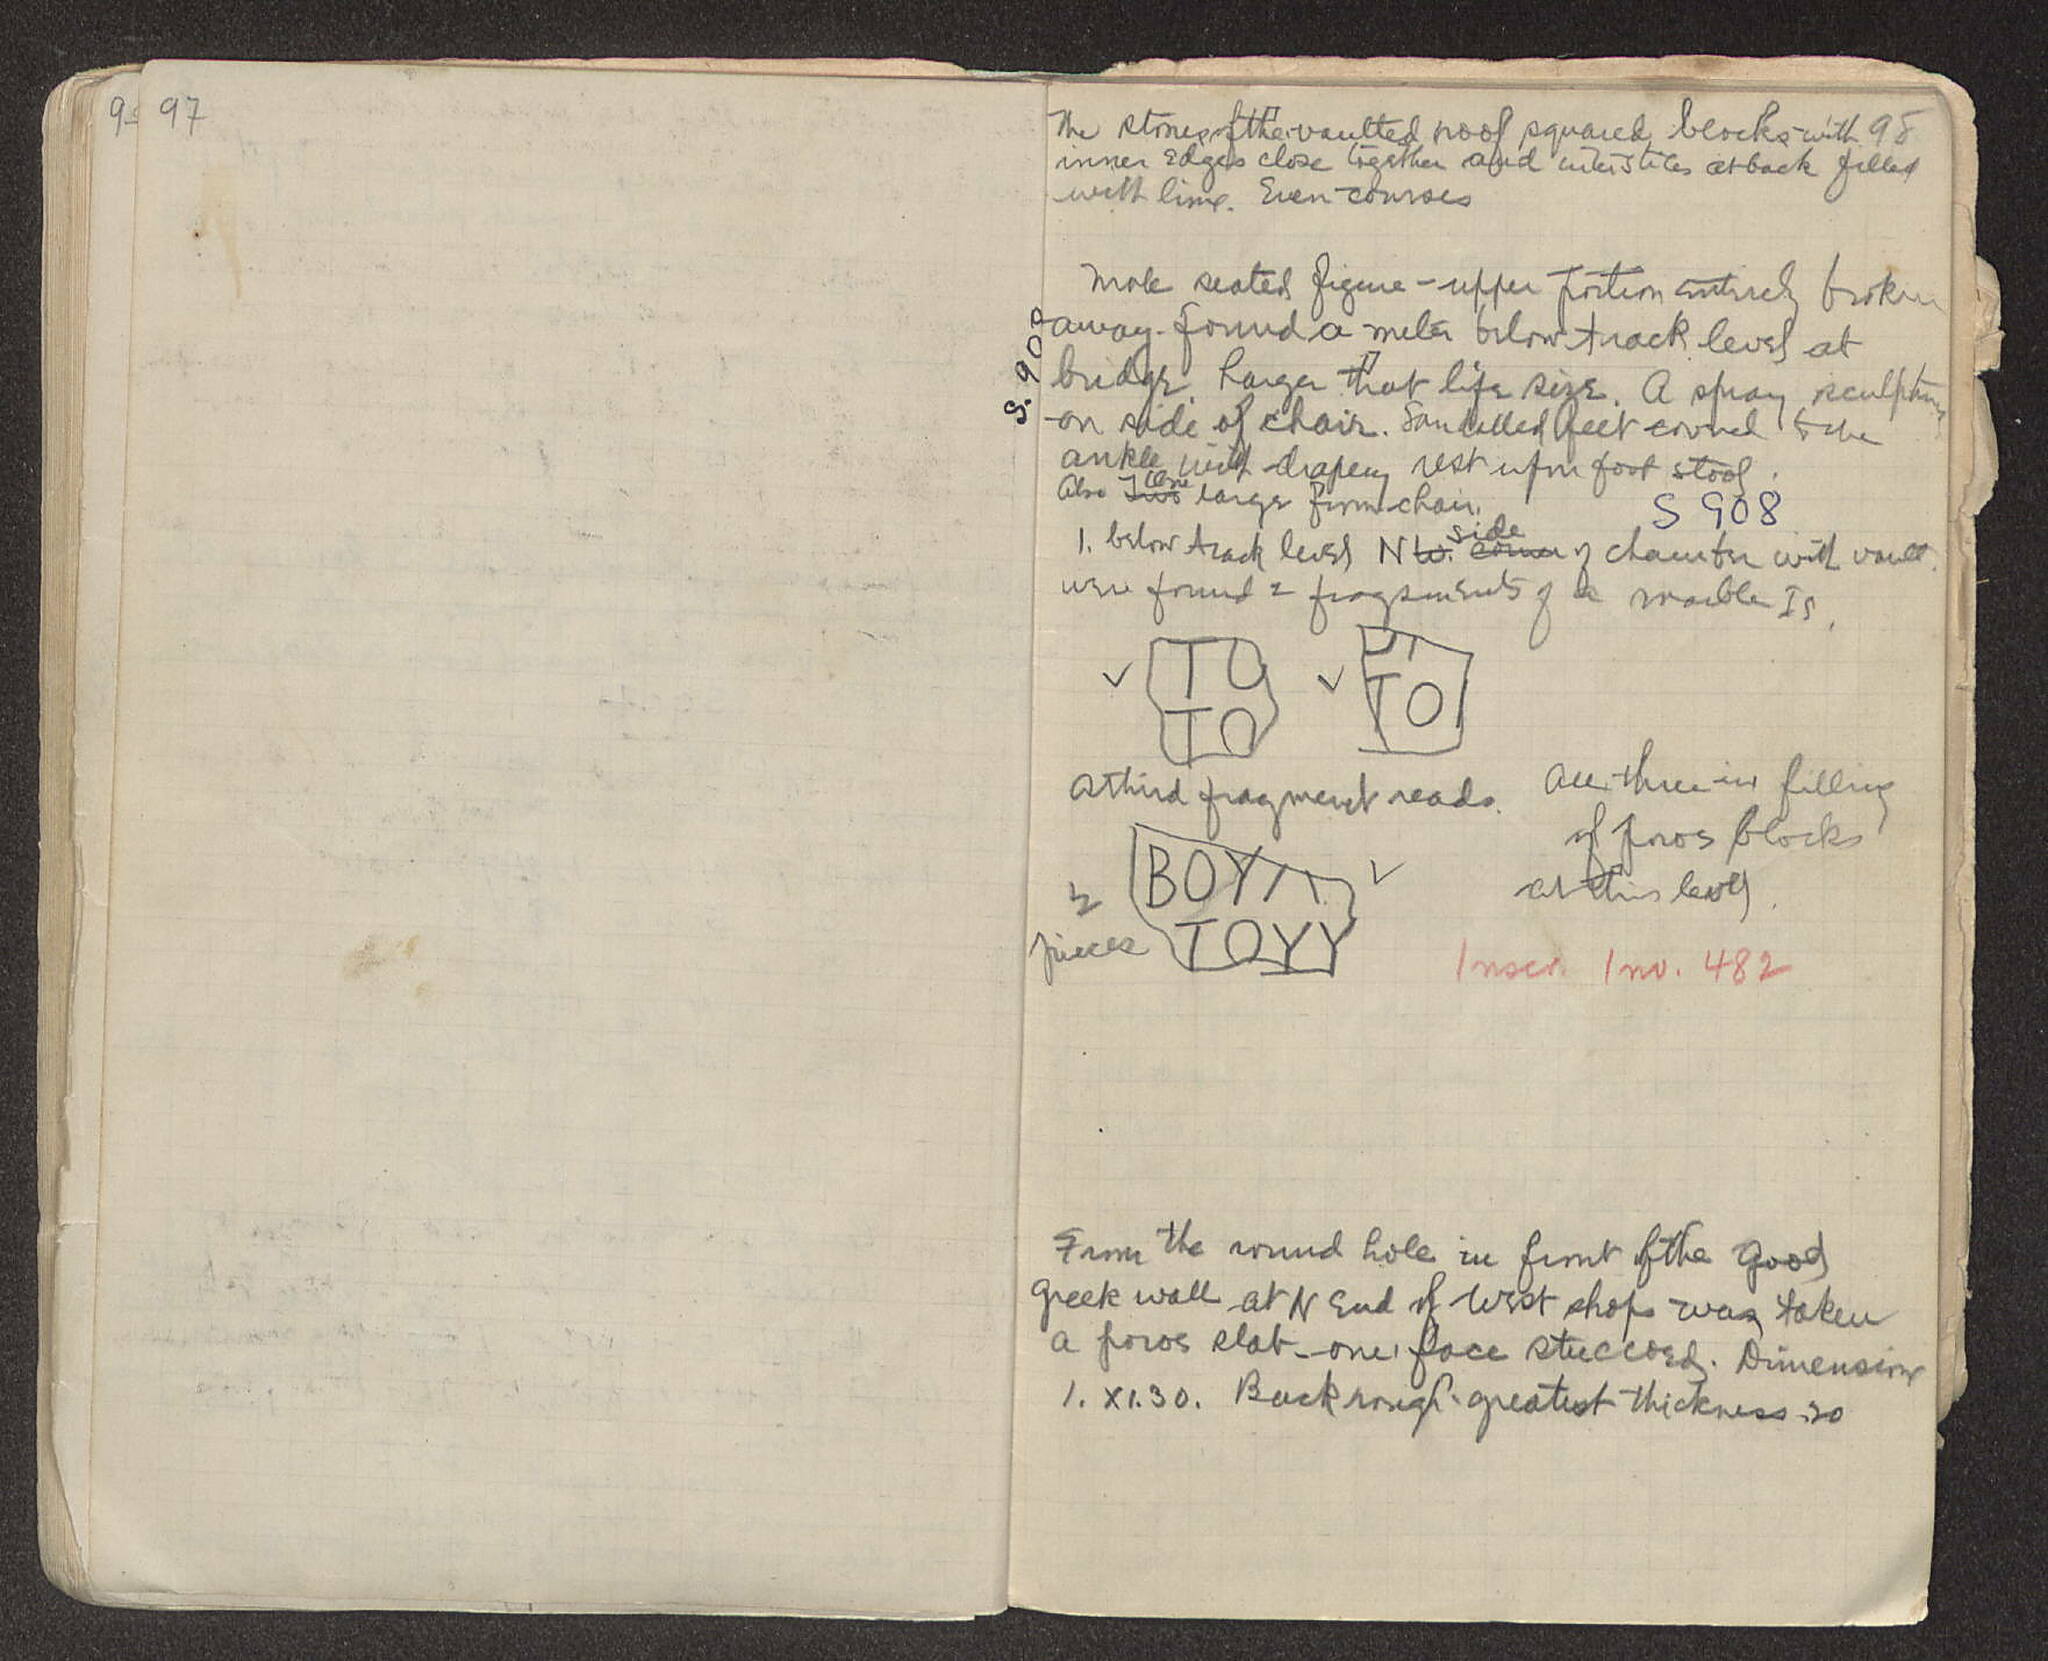 97
98
The stones of the vaulted roof squared blocks with
inner edges close together and interstices at back filled
with lime. Even courses
Male seated figure - upper portion entirely broken
away. found a meter below track level at
bridge. Larger that life size. A spray sculptured
on side of chair. Sandalled feet covered to the
ankle with drapery rest upon foot stool.
Also Two One large from chair.
S 908
S. 908
1. below track level N W. corner side of chamber with vault
were found 2 fragments of a marble Is.
TO
TO
TO
A third fragment reads.
All three in filling
of poros blocks
at this level.
2
pieces
BOY
TOYY
Inscr. Inv. 482
From the round hole in front of the good
Greek wall at N End of West shops was taken
a poros slab - one face stuccoed. Dimensions
1. x 1.30. Back rough. greatest thickness .20